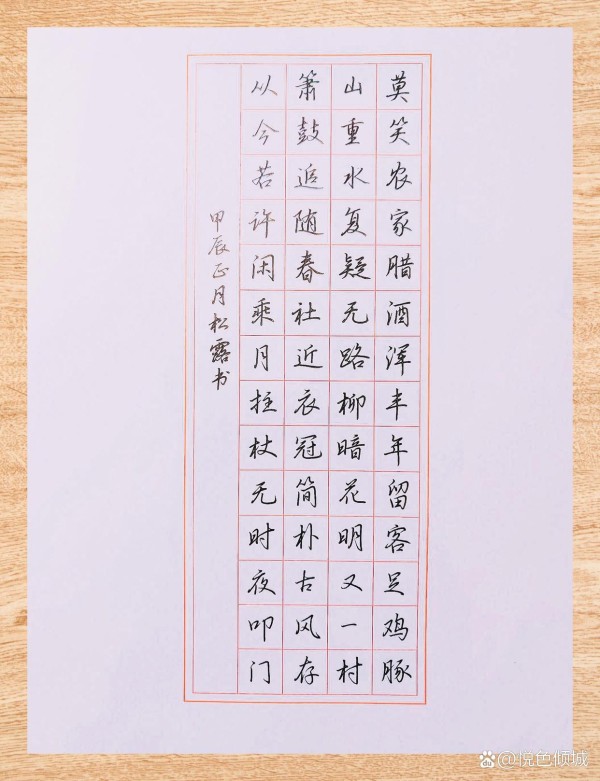 莫笑农家腊酒浑丰年留客足鸡豚
山重水复疑无路柳暗花明又一村
箫鼓追随春社近衣冠简朴古风存
从今若许闲乘月拄杖无时夜叩门
甲辰正月松露书
Bai du @悦色倾城